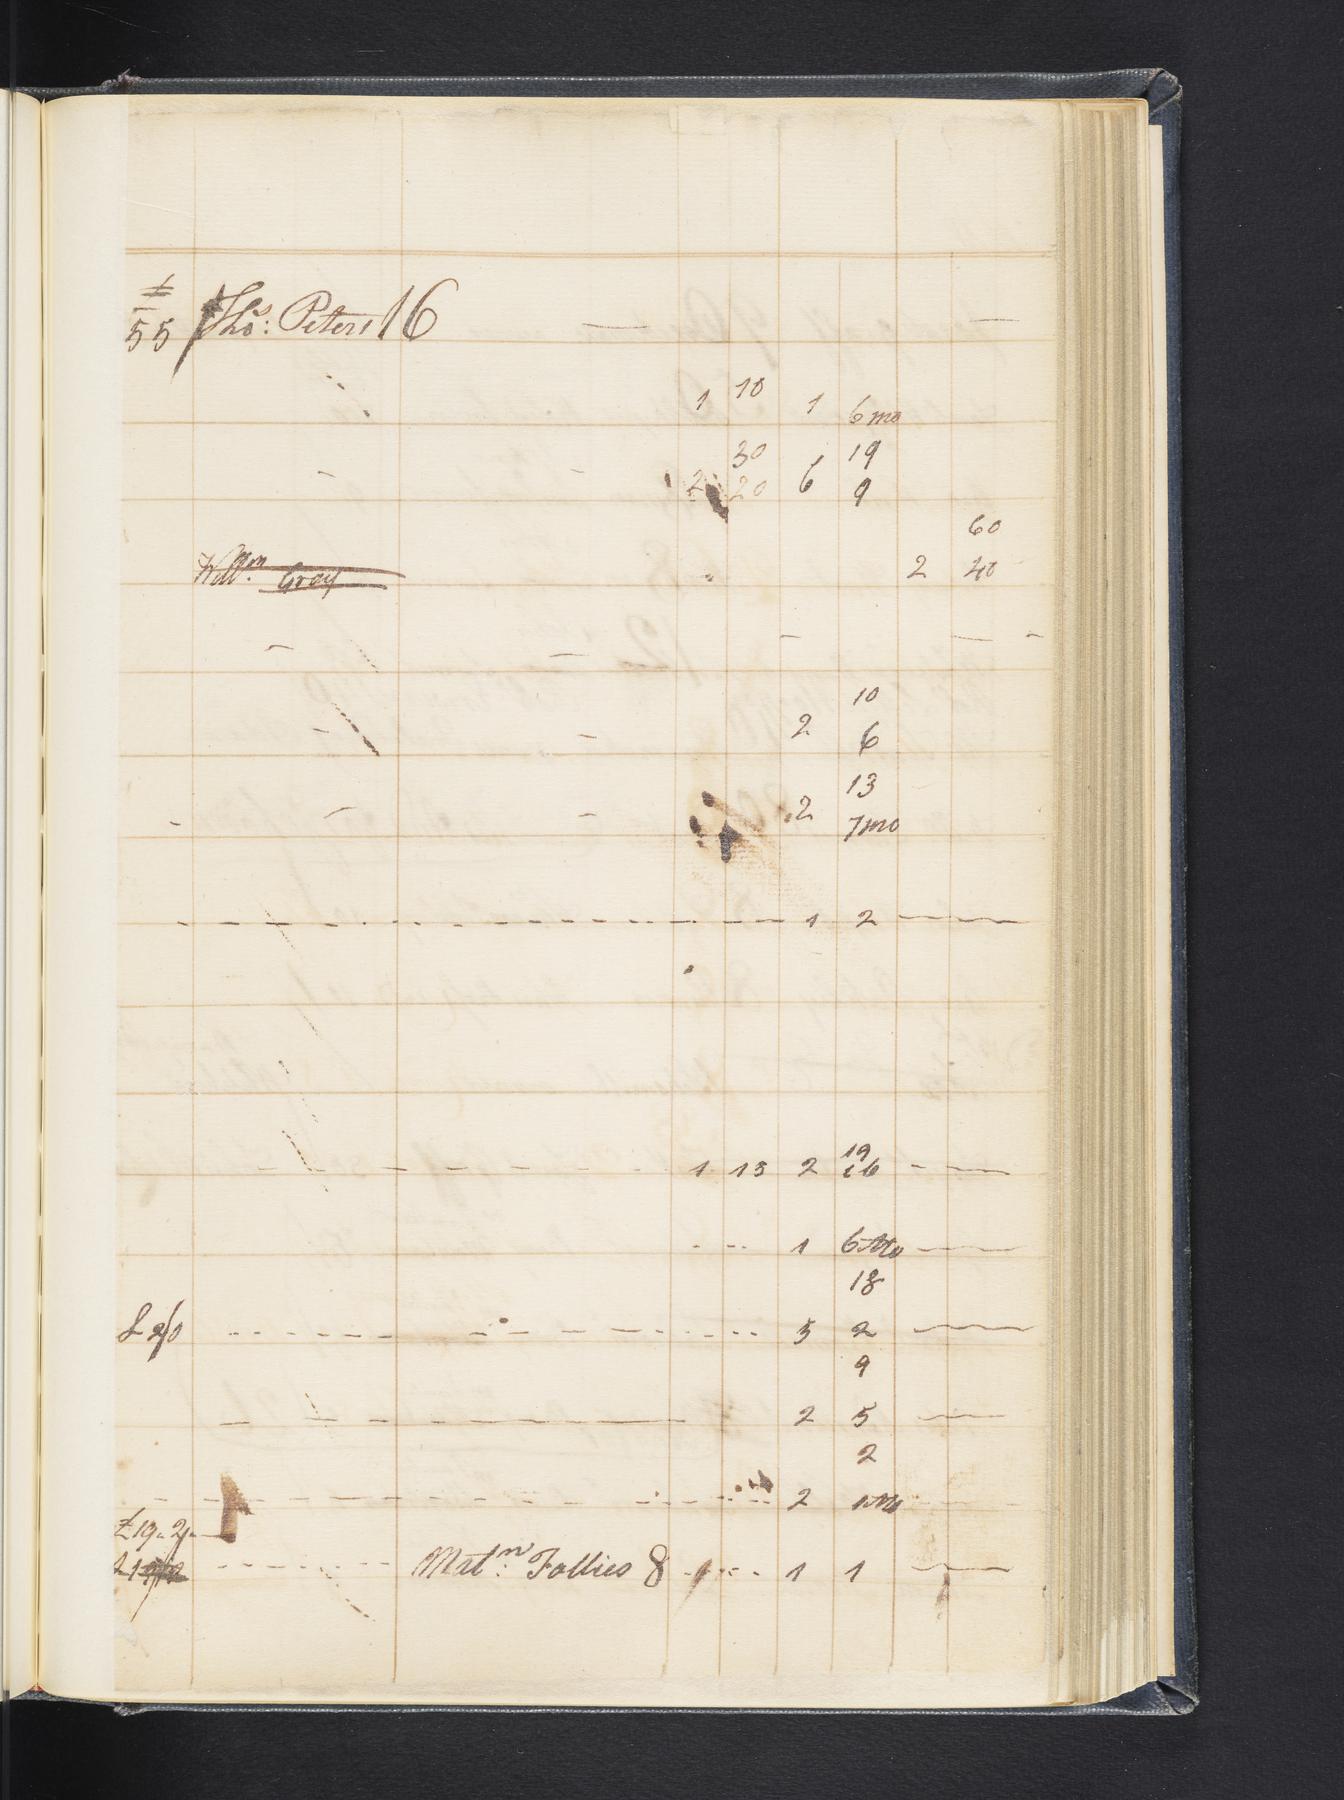 £
55 Thos: Peters 16
1 10 1 6 mo
30 19
2 20 6 9
60
Willm. Gray 2 40
10
2 6
13
2 7 mo
1 2
19
1 13 2 16
1 6 Mo
18
£ 2/0 5 2
9
2 5
2
2 1 Mo
£19.2.
Matn: Follies 8 1 1 1